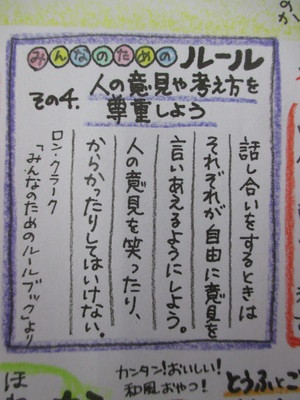 みんなのための ルール
その4. 人の意見や考え方を
尊重しよう
話し合いをするときは
それぞれが自由に意見を
言いあえるようにしよう。
人の意見を笑ったり、
からかったりしてはいけない。
ロン・クラーク
「みんなのためのルールブック」より
カンタン!おいしい!
和風おやつ!
とうふとご
ほね
のか